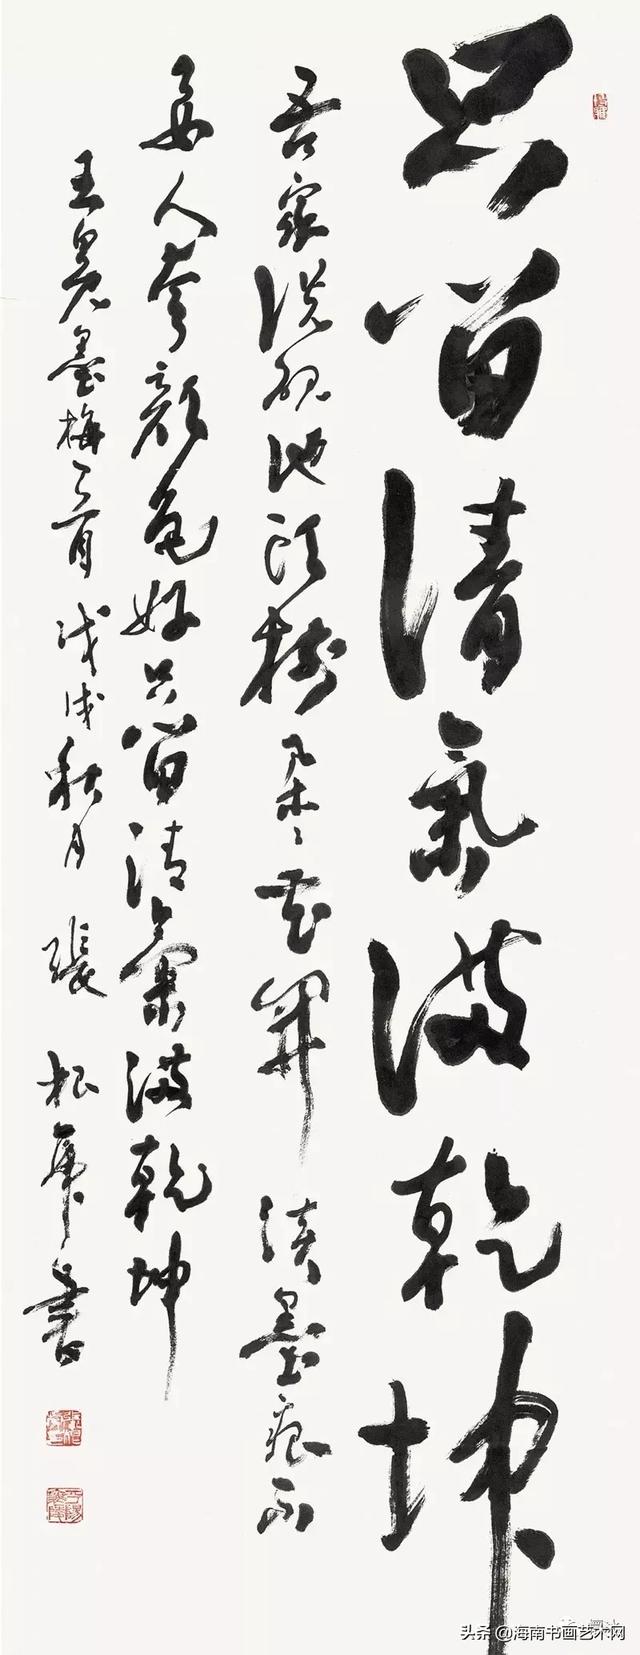 只留清氣滿乾坤
吾家洗硯池頭樹朵〻花開淡墨痕不
要人夸顏色好只留清氣滿乾坤
王冕墨梅一首 戊戌秋月 張松書
头条 @海南书画艺术网